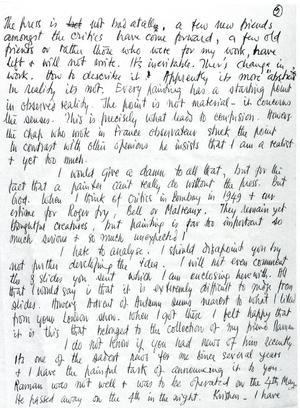 5
The press is not bad atall, a few new friends
amongst the critics have come forward, a few old
friends or rather those who were for my work, have
left & will not write. It's inevitable. There's change in
work. How to describe it? Apparently its more abstract
In reality its not. Every painting has a starting point
in observed reality. The point is not material – it concerns
the senses. This is precisely what leads to confusion. However
the chap who wrote in France observateur struck the point
in contrast with other opinions he insists that I am a realist
& yet too much.
I would give a damn to all that, but for the
fact that a painter can't really do without the press. But
God. When I think of critics in Bombay in 1949 & our
esteem for Roger Fry, Bell or Malraux. They remain yet
thoughtful creatures, but painting is far too important so
much obvious & so much unexpected!
I hate to analyse. I should disappoint you by
not further developing the idea. I will not even comment
the 3 slides you sent which I am enclosing herewith. All
that I would say is that it is extremely difficult to judge from
slides. However Advent of Autumn seems nearest to what I liked
from your London show. When I got these I felt happy that
it is this that belonged to the collection of my friend Raman
I do not know if you had news of him recently
Its one of the saddest news for me since several years
& I have the painful task of announcing it to you.
Raman was not well & was to be operated on the 4th May.
He passed away on the 4th in the night. Krishen – I have